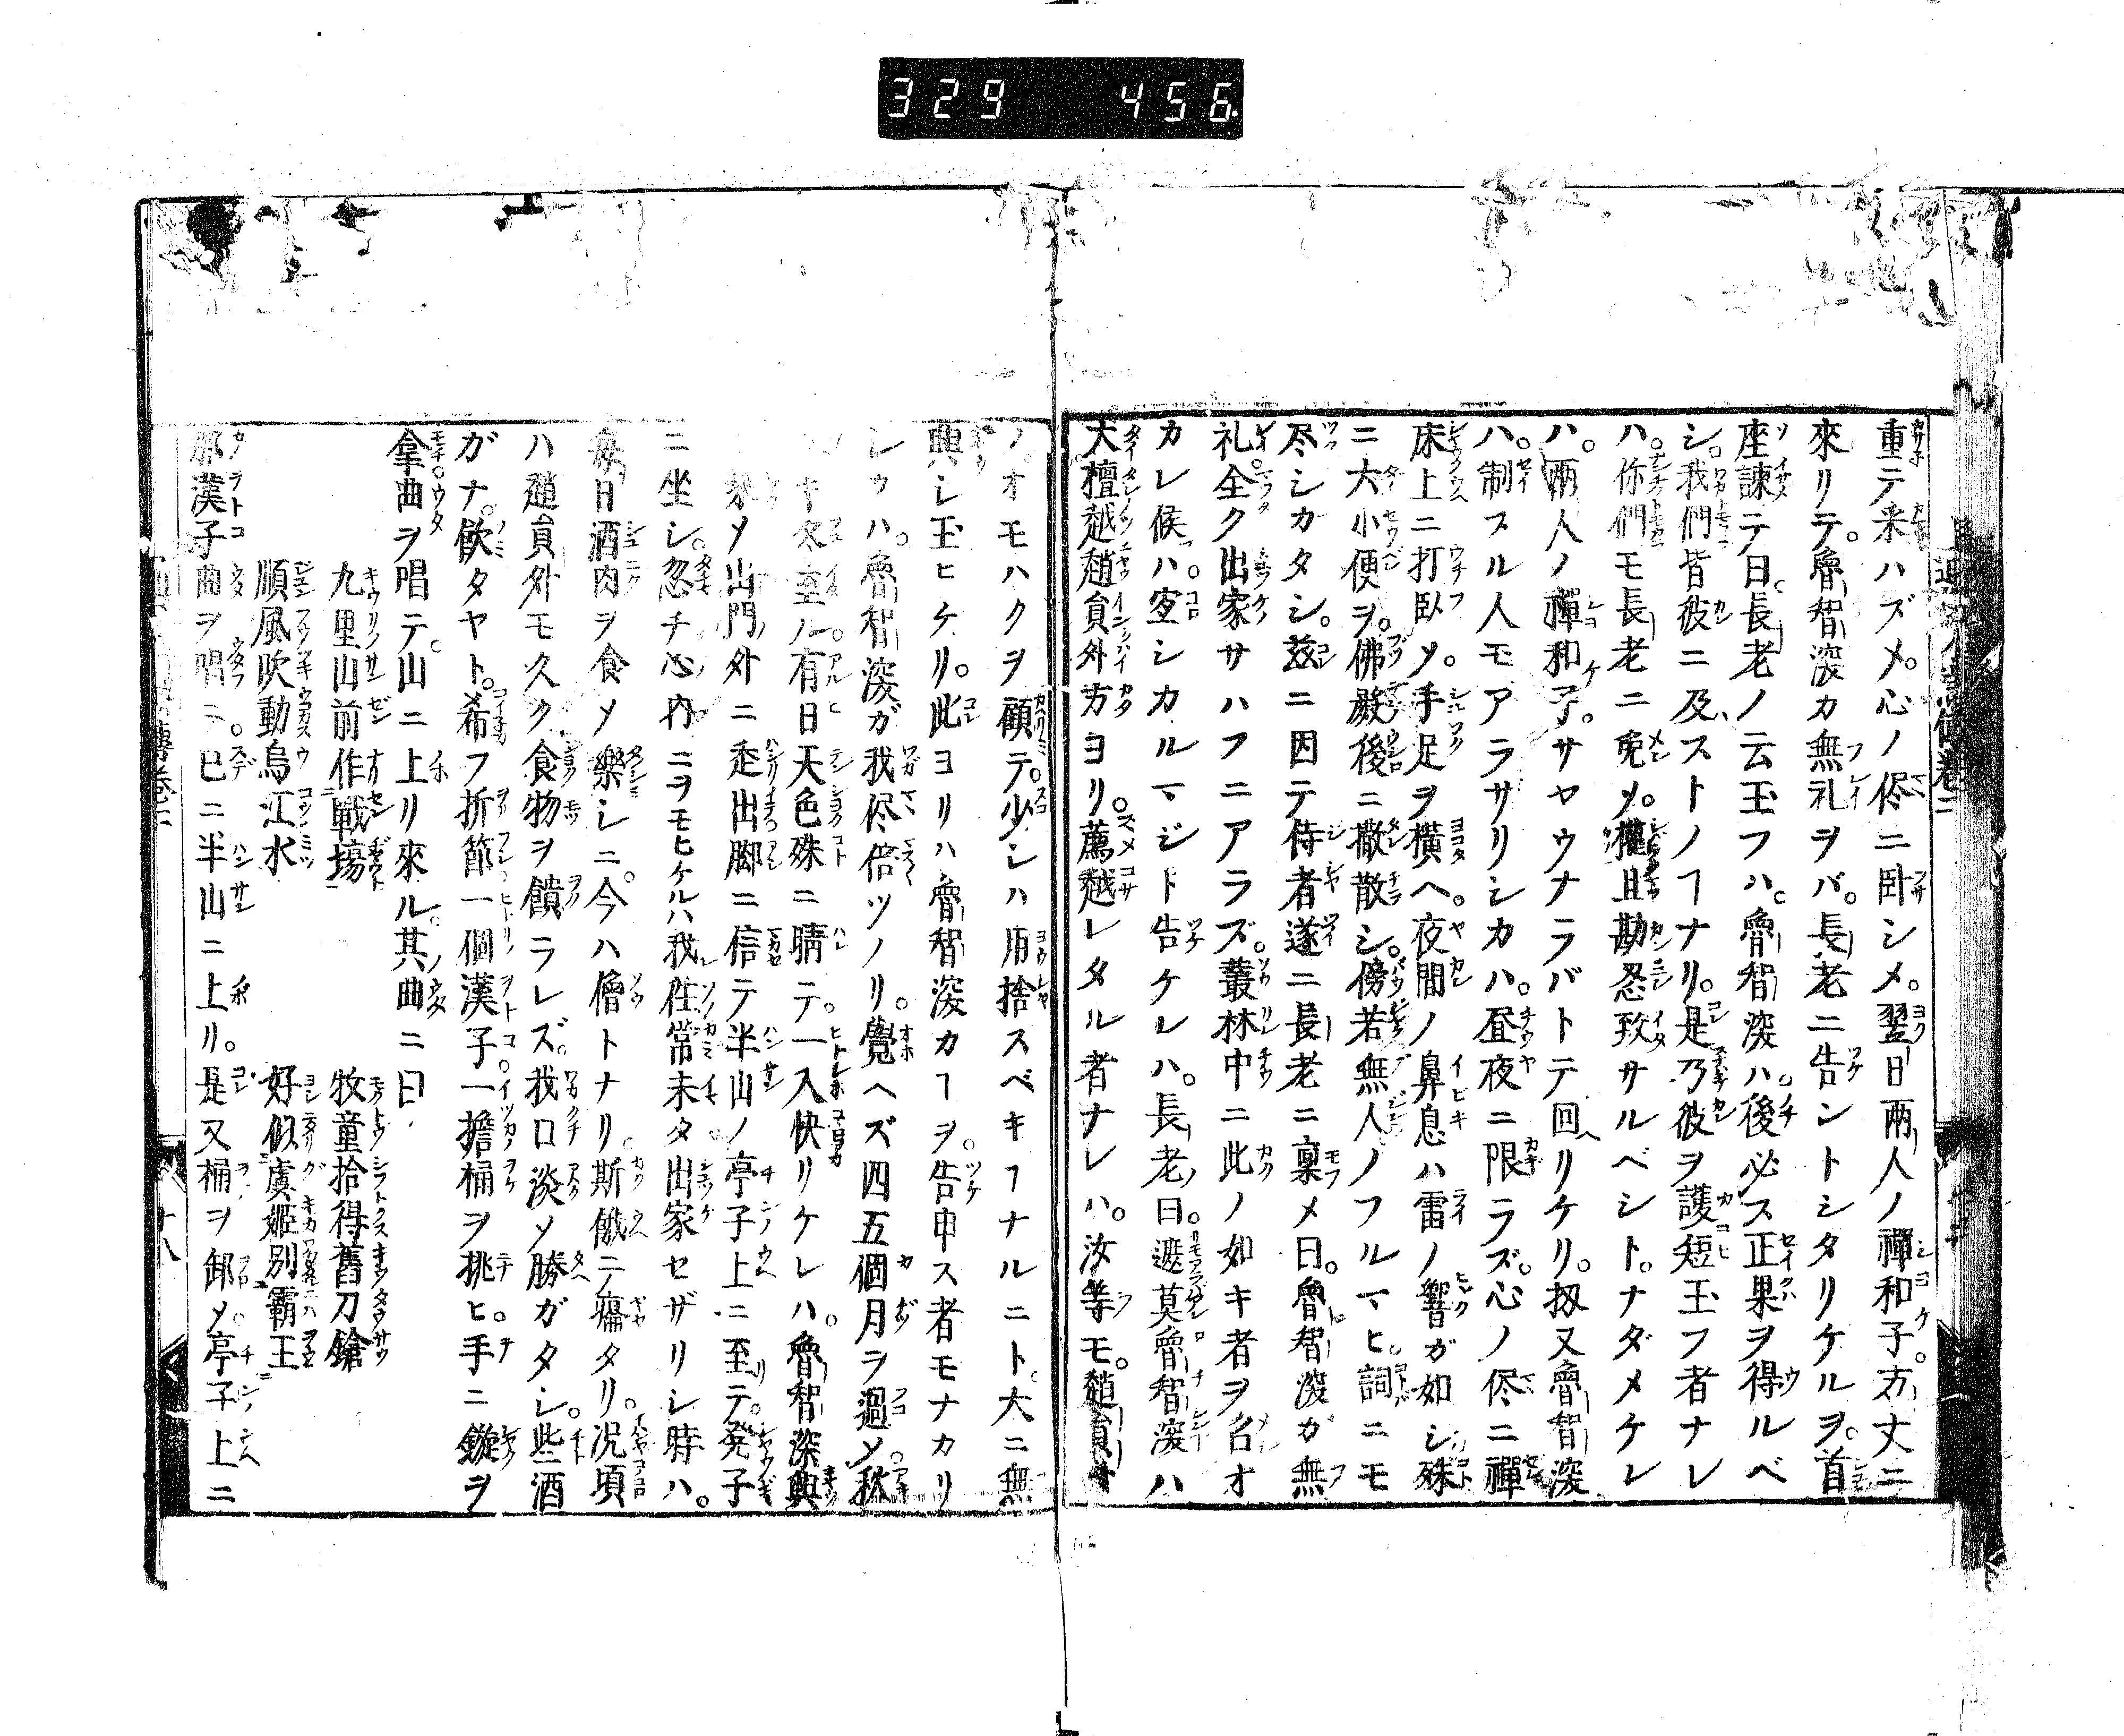 329 456
重テ来ハズメ。心ノ侭ニ臥シメ。翌日兩人ノ禪和子。方丈ニ
來リテ。魯智深カ無礼ヲバ。長老ニ告ントシタリケルヲ。首
座諫テ曰。長老ノ云玉フハ。魯智深ハ。後必ス正果ヲ得ルベ
シ。我們皆彼ニ及ストノヿナリ。是乃彼ヲ護短玉フ者ナレ
ハ。你們モ長老ニ免〆。權且勘忍致サルベシト。ナダメケレ
ハ。兩人ノ禪和子。サヤウナラバトテ回リケリ。扨又魯智深
ハ。制スル人モアラサリシカハ。昼夜ニ限ラズ。心ノ侭ニ禪
床上ニ打臥〆。手足ヲ横ヘ。夜間ノ鼻息ハ雷ノ響ガ如シ殊
ニ大小便ヲ。佛殿後ニ撒散シ。傍若無人ノフルマヒ。詞ニモ
尽シカタシ。茲ニ因テ侍者遂ニ長老ニ稟メ曰。魯智深ガ無
礼。全ク出家サハフニアラズ。叢林中ニ此ノ如キ者ヲ召オ
カレ候ハ。宜シカルマジト告ケレハ。長老曰。遮莫魯智深ハ
大檀越趙員外方ヨリ。薦越レタル者ナレハ。汝等モ。趙員外
ノオモハクヲ顧テ。少シハ用捨スベキヿナルニト。大ニ無
興シ玉ヒケリ。此ヨリハ魯智深カヿヲ。告申ス者モナカリ
シカハ。魯智深ガ我侭倍ツノリ。覺ヘズ四五個月ヲ過〆。秋
冬至ル。有日天色殊ニ晴テ。一入快リケレハ。魯智深興
〆出門外ニ走出脚ニ信テ半山ノ亭子上ニ至テ。発子
ニ坐シ。忽チ心内ニヲモヒケルハ我往常未タ出家セザリシ時ハ。
毎日酒肉ヲ食〆樂シニ。今ハ僧トナリ。斯餓ニ痛タリ。况頃
ハ趙員外モ久ク食物ヲ饋ラレズ。我口淡〆勝ガタシ。些酒
ガナ。飲タヤト。希フ折節一個漢子。一擔桶ヲ挑ヒ。手ニ鏇ヲ
拿曲ヲ唱テ。山ニ上リ來ル。其曲ニ曰、
九里山前作戰塲　牧童拾得舊刀鎗
順風吹動烏江水　好似虞姫別霸王
那漢子曲ヲ唱ニ。已ニ半山ニ上リ。是又桶ヲ卸〆。亭子上ニ
十八